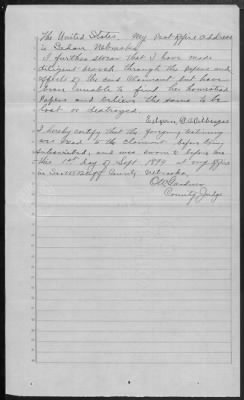 the United States. My Post Office address
is Nebraska
I further swear that I have made
diligent search through the papers and
effects of the said Claimant but have
been unable to find her homestead
Papers and believe the same to be
lost or destroyed.
I hereby certify that the forgoing testimony
was read to the claimant before being
subscribed, and was sworn to before me
this 1st day of Sept 1894 at my office
in County Nebraska.
County Judge